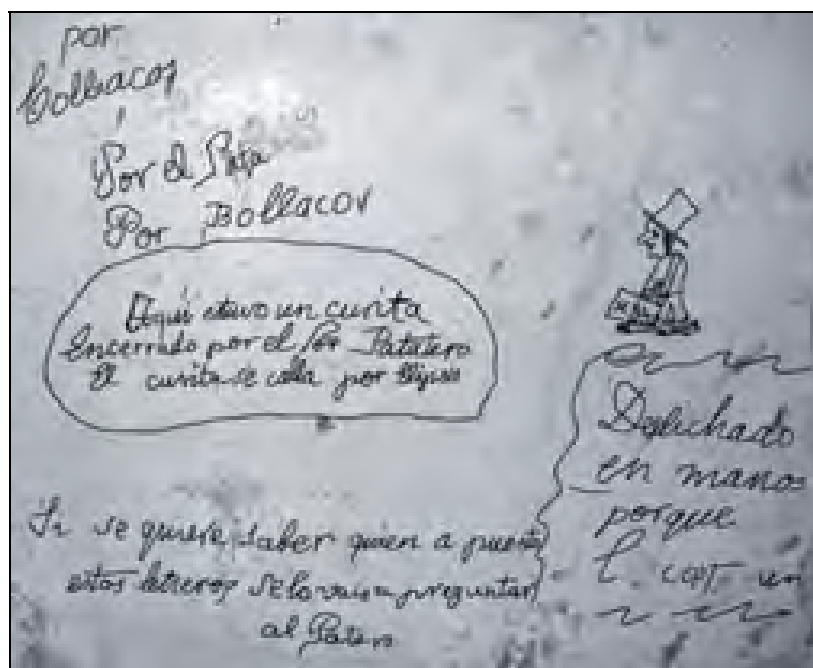 por
Bollacos
Por el Pata
Por Bollacos
Aqui etuvo un curita
Encerrado por el Por Patatero
El curita se calla por
Si se quiere saber quien a puesto
estos letreros se lo vais a preguntar
al Patas
en manos
porque